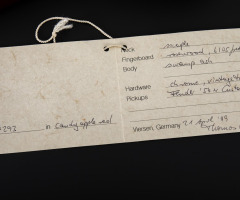 Neck maple
Fingerboard rosewood,
Body swamp ash
Hardware chrome,
Pickups Fender '54 Custom
in Candy apple red
Viersen, Germany 21 April
Thomas